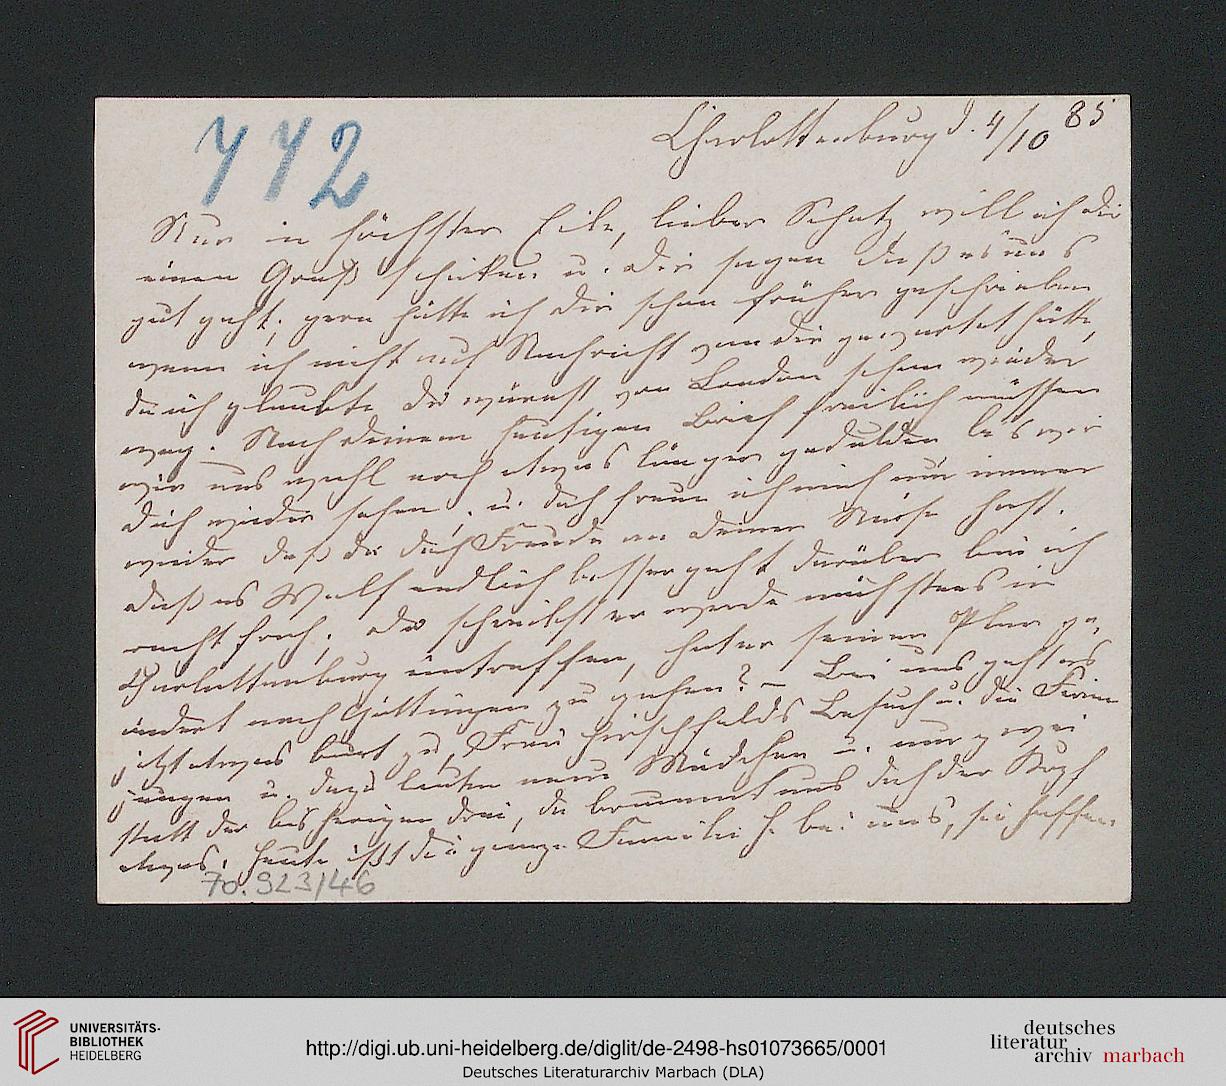 772
Charlottenburg d. 4/10 85
Nur in höchster Eile, lieber Schatz will ich dir
einen Gruß schicken u. dir sagen daß es uns
gut geht; gern hätte ich dir schon früher geschrieben
wenn ich nicht auf Nachricht von dir gewartet hätte,
da ich glaubte du wärest von London schon wieder
weg. Nach deinem heutigen Brief freilich müssen
wir uns wohl noch etwas länger gedulden bis wir
dich wieder sehen, u. doch freue ich mich nur immer
wieder daß du doch Freude an deiner Reise hast.
daß es Wolf endlich besser geht darüber bin ich
recht froh; du schreibst er werde nächstens in
Charlottenburg eintreffen, hat er seinen Plan ge-
ändert nach Göttingen zu gehen? – Bei uns geht es
jetzt etwas bunt zu, Frau Hirschfelds Besuch u. die
jungen u. dazu lauter neue Mädchen u. nur zwei
statt der bisherigen drei, da brummt uns doch der Kopf
etwas. Heute ißt die ganze Familie H. bei uns, sie hoffen
70.923/46
UNIVERSITÄTS-
BIBLIOTHEK
HEIDELBERG
http://digi.ub.uni-heidelberg.de/diglit/de-2498-hs01073665/0001
Deutsches Literaturarchiv Marbach (DLA)
deutsches
literatur
archiv marbach